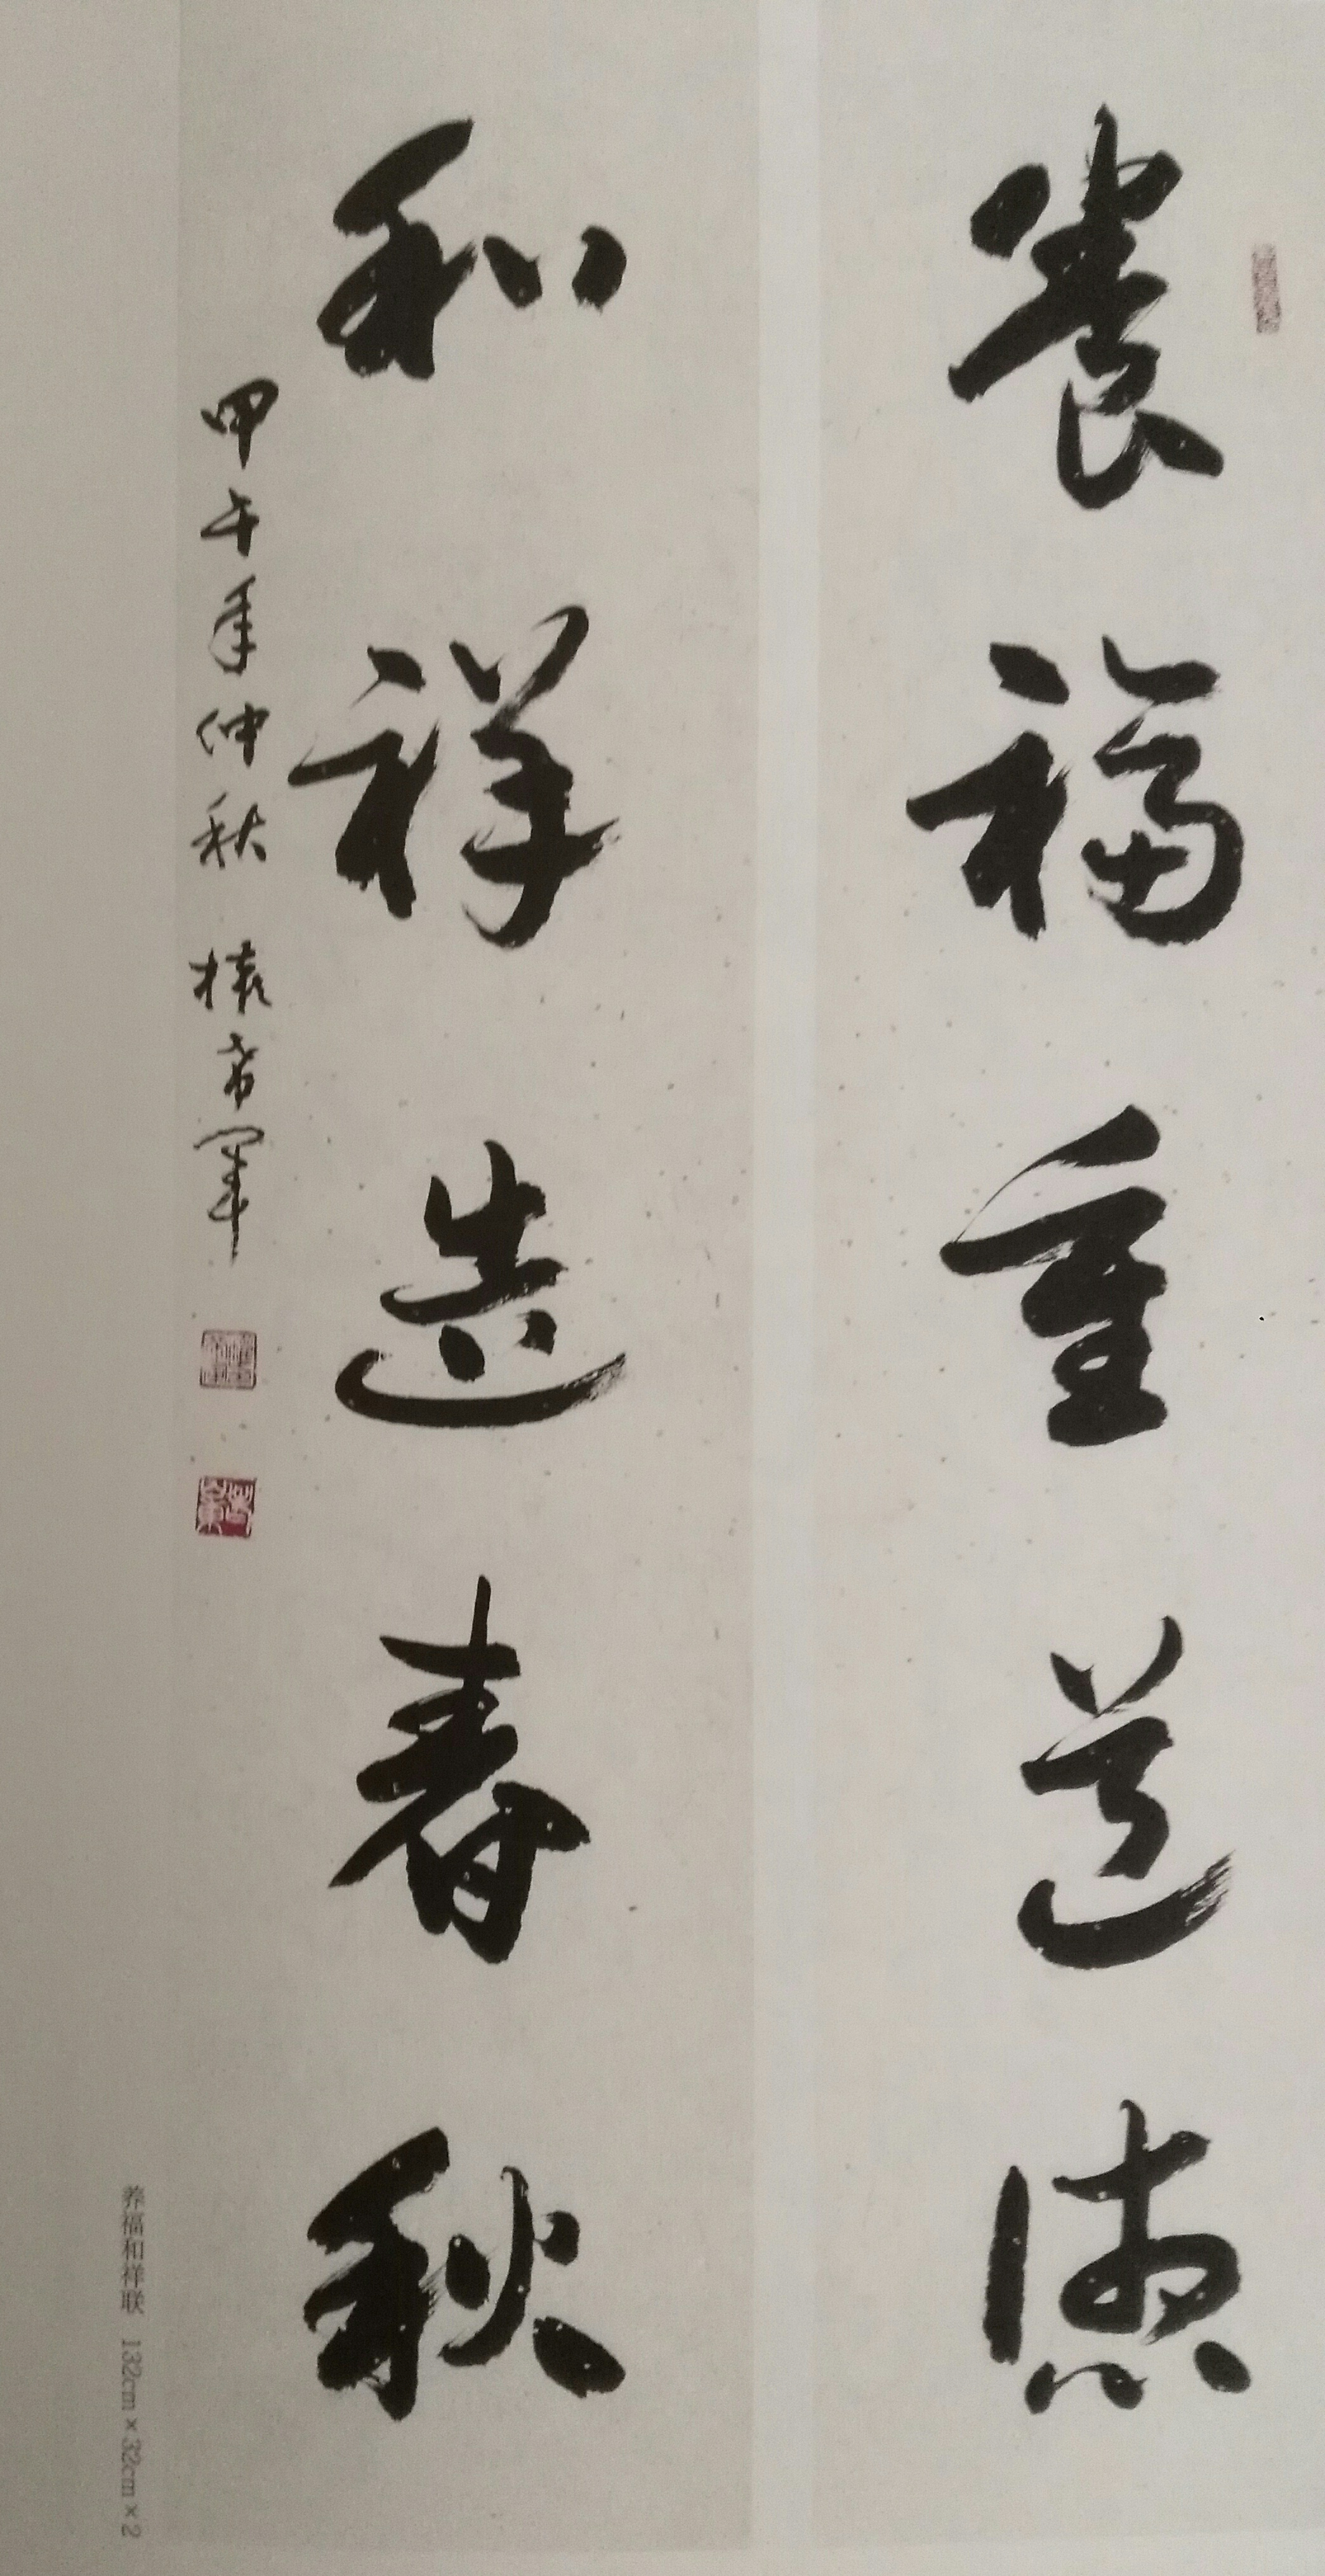 養福重道德
和祥造春秋
甲午年仲秋 希軍
养福和祥联 132cm×32cm×2